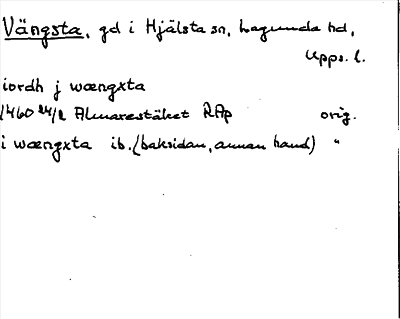 Vängsta, gd i Hjälsta sn, Lagunda hd,
Upps. l.
iordh j wængxta
1460 24/2 Almarestäket RAp orig.
i wængxta ib. (baksidan, annan hand) "